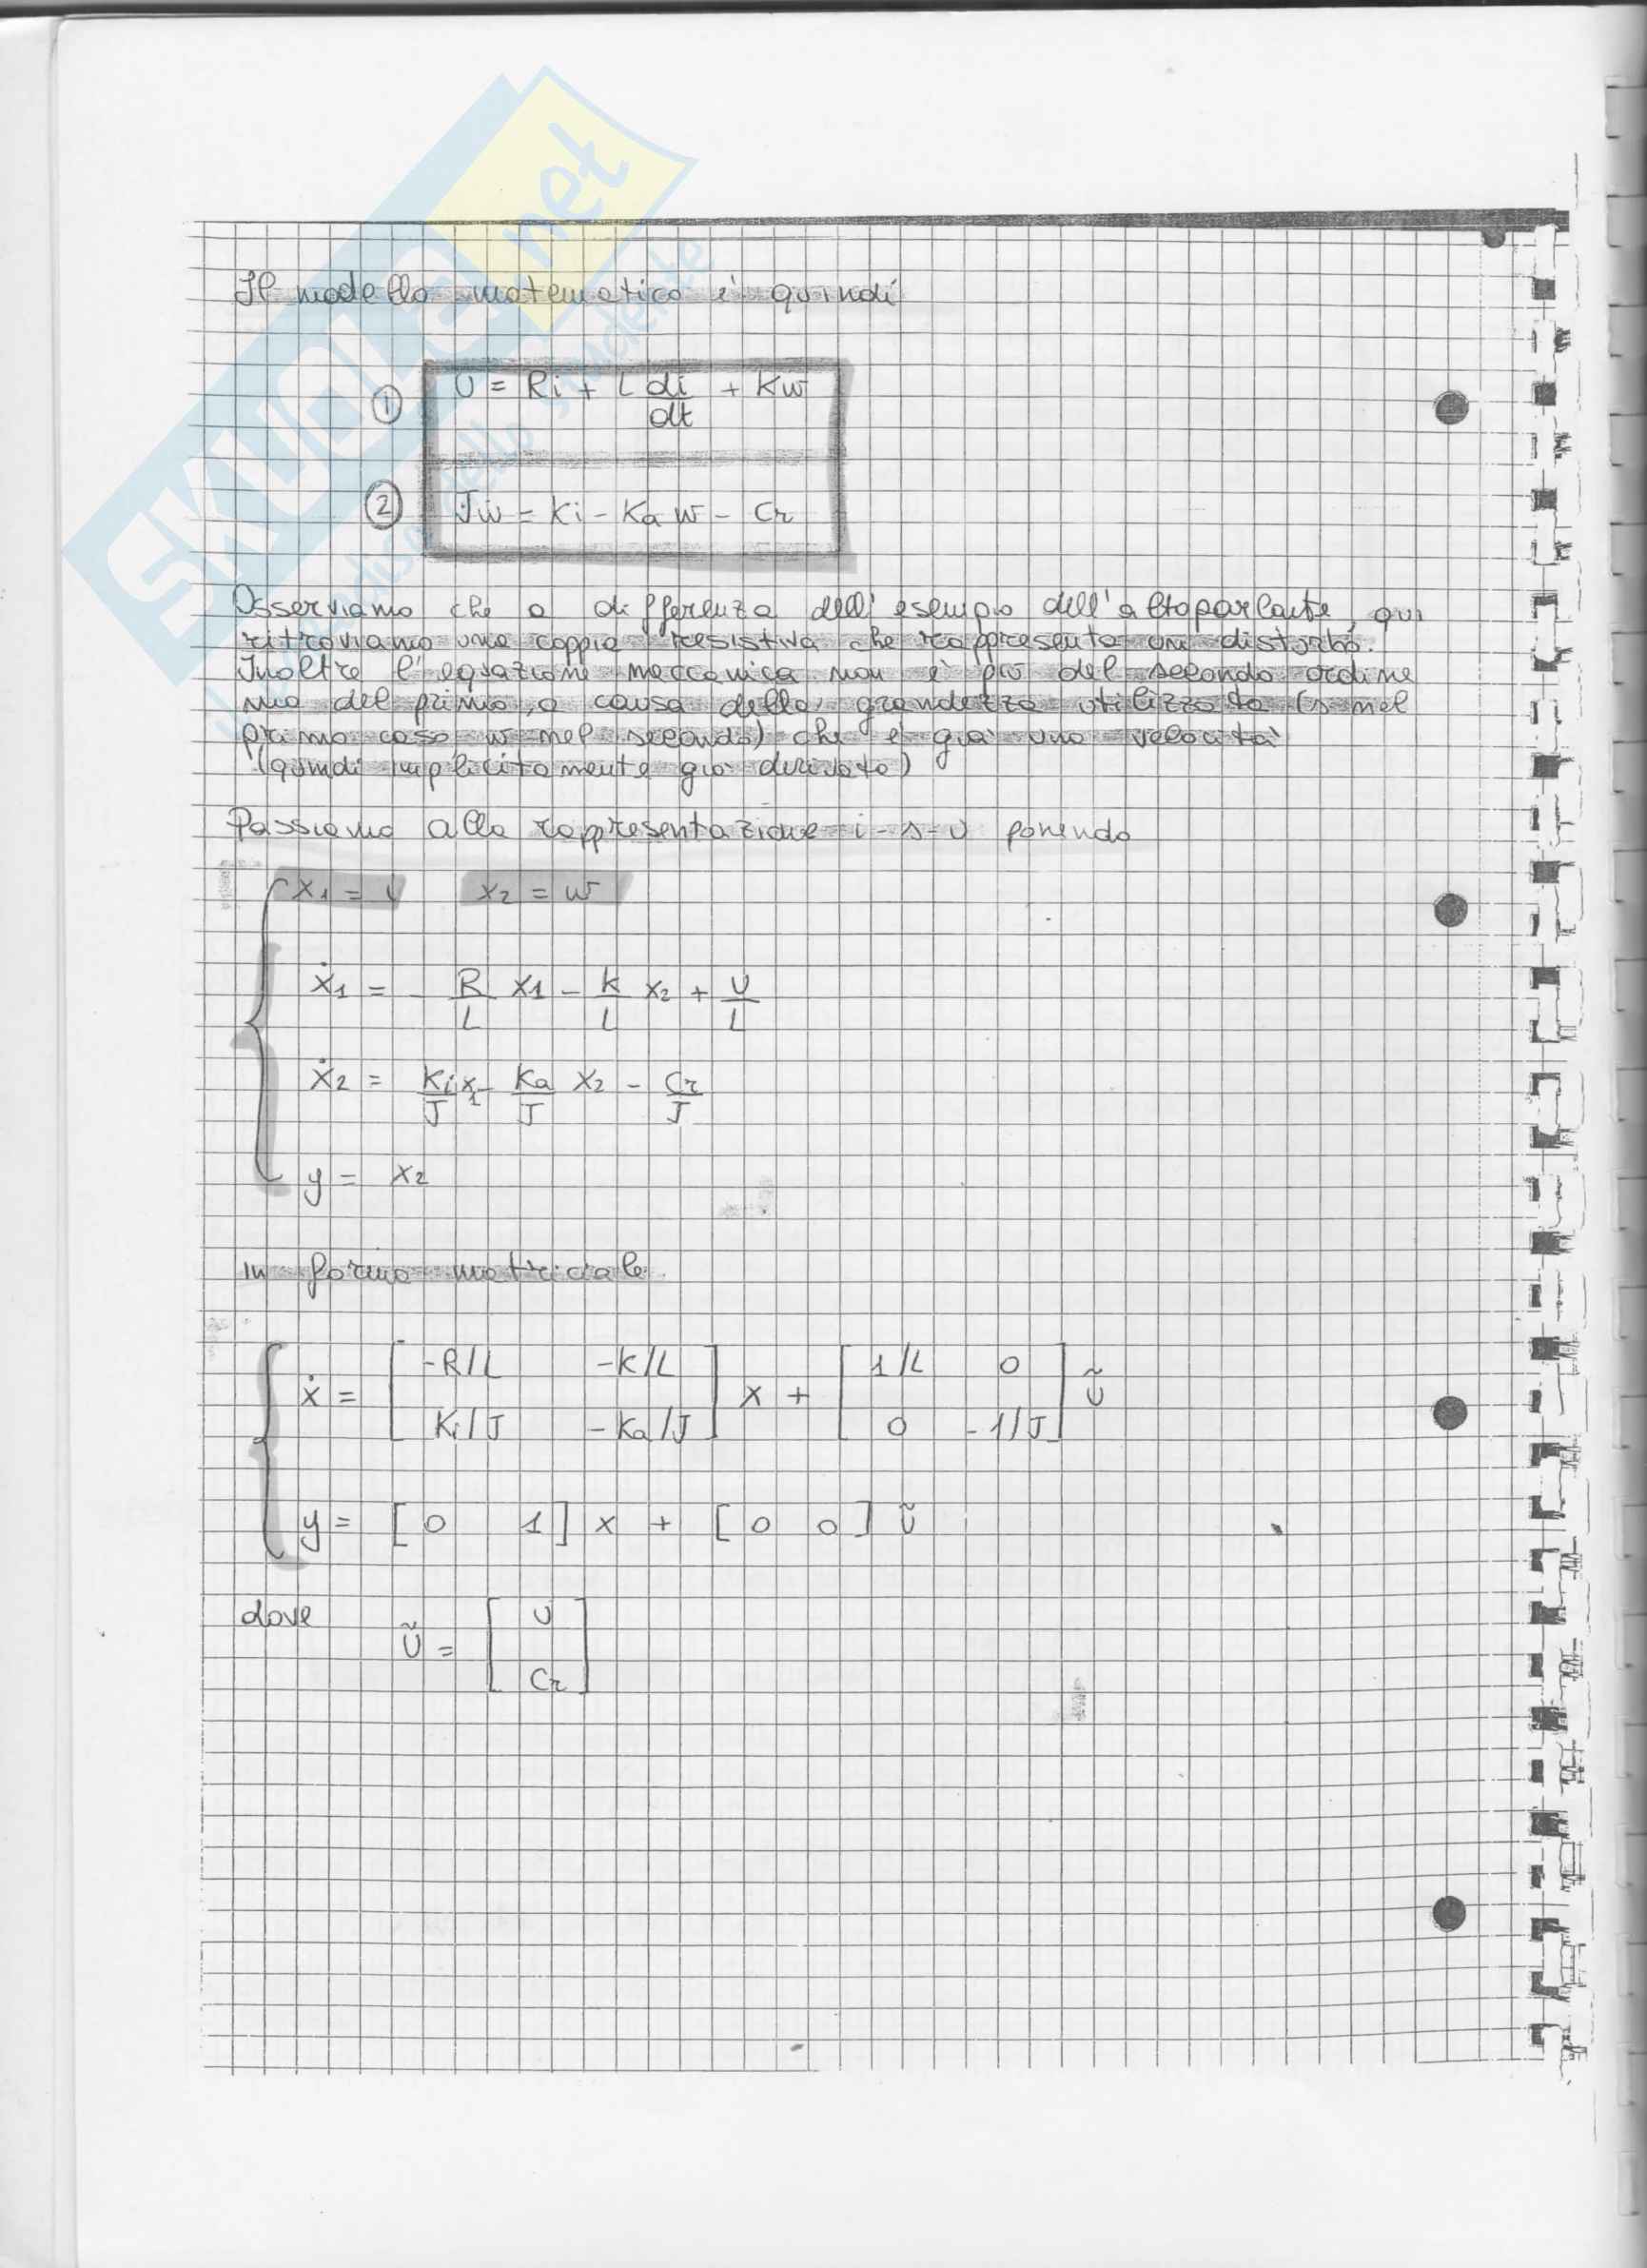 SKUOLA.net
Il modello matematico è quindi
① U = Ri + L di/dt + Kw
② Jẇ = Ki - Ka w - Cr
Osserviamo che a differenza dell'esempio dell'altoparlante, qui
ritroviamo una coppia resistiva che rappresenta un disturbo.
Inoltre l'equazione meccanica non è più del secondo ordine
ma del primo, a causa della grandezza utilizzata (s nel
primo caso, w nel secondo) che è già una velocità
(quindi implicitamente già derivata)
Passiamo alla rappresentazione i-s-u ponendo
x1 = i x2 = w
ẋ1 = - R/L x1 - K/L x2 + U/L
ẋ2 = Ki/J x1 - Ka/J x2 - Cr/J
y = x2
in forma matriciale
ẋ = [ -R/L -K/L ] x + [ 1/L 0 ] ũ
Ki/J -Ka/J 0 -1/J
y = [ 0 1 ] x + [ 0 0 ] ũ
dove ũ = [ U
Cr ]